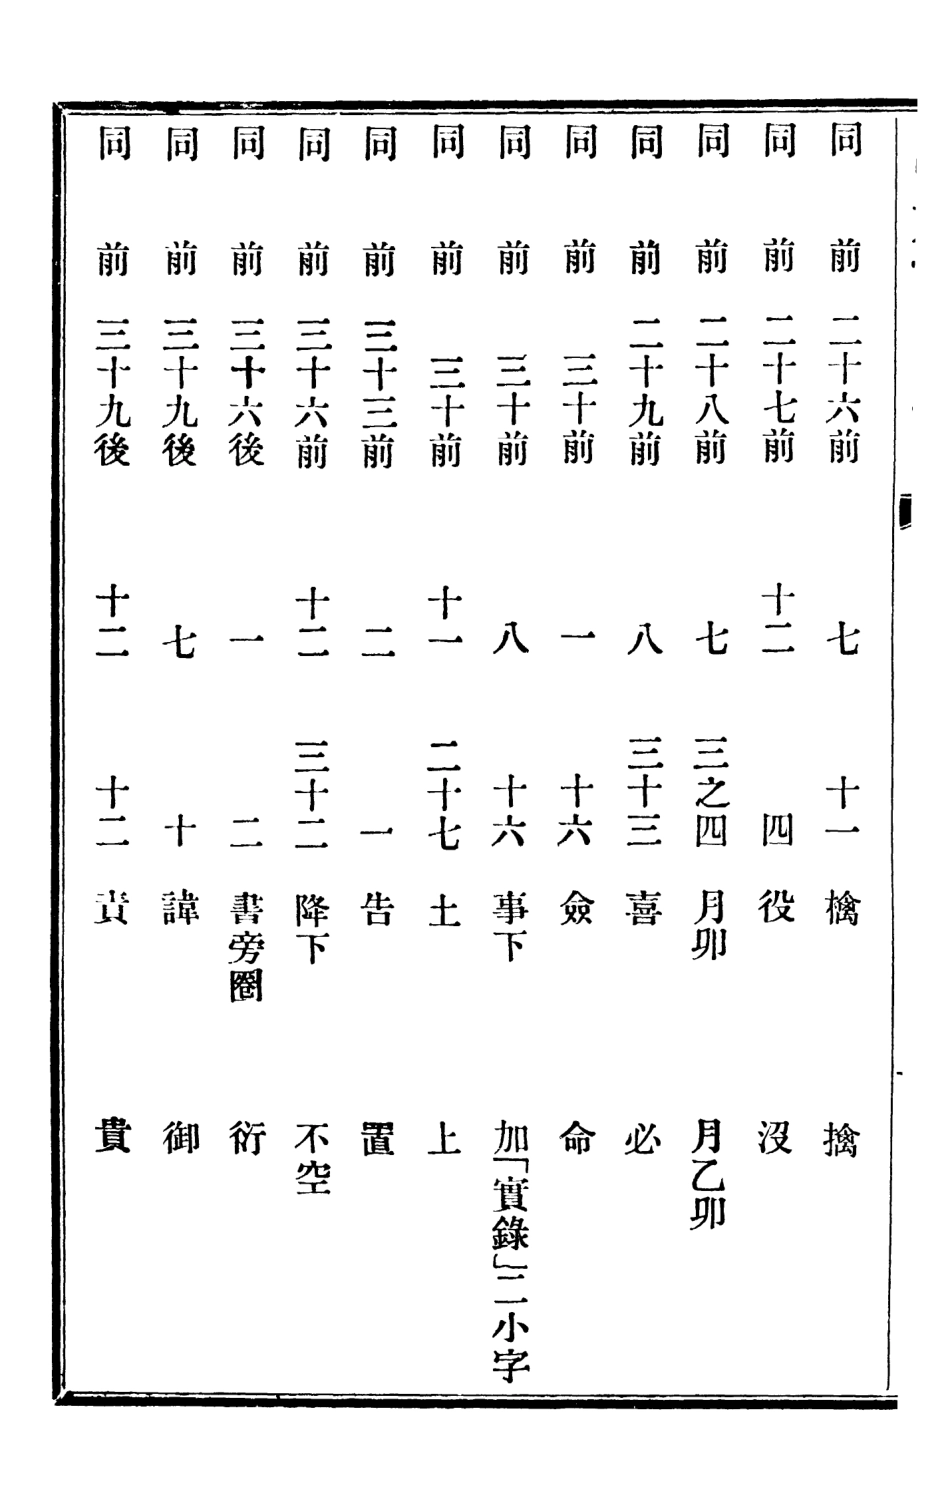 同 前 二十六前 七 十一 檎 擒
同 前 二十七前 十二 四 役 沒
同 前 二十八前 七 三之四 月卯 月乙卯
同 前 二十九前 八 三十三 喜 必
同 前 三十前 一 十六 僉 命
同 前 三十前 八 十六 事下 加「實錄」二小字
同 前 三十前 十一 二十七 土 上
同 前 三十三前 二 一 告 置
同 前 三十六前 十二 三十二 降下 不空
同 前 三十六後 一 二 書旁圈 衍
同 前 三十九後 七 十 諱 御
同 前 三十九後 十二 十二 責 貴